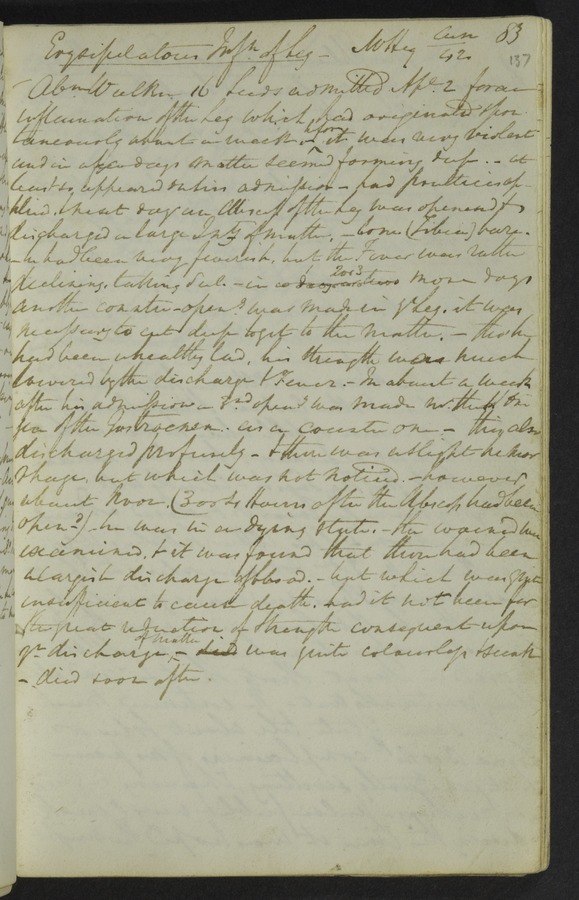 Erysipelatous Inf.n of leg - Mr Hey 83
137
Abm Walker 16 Leeds admitted Apl 2 for an
inflammation of the leg which had originated spon
taneously about a week before, it was very violent
and in a few days matter seemed forming deep. - at
least so appeared on his admission - had poultices ap
plied. next day an Abscess of the leg was opened &
discharged a large Qnty of matter, - bone (Tibia) bare.
- he had been very feverish, but the Fever was rather
declining, taking Sal. - in 2 or 3 more days
another counter-openg was made in ye leg. it was
necessary to cut deep to get to the matter. - tho he
had been a healthy lad, his strength was much
lowered by the discharge & Fever. - In about a week
after his admission a 3rd openg was made
of the Gastrocnem. as a counter one - this also
discharged profusely - & there was a slight hemor
rhage, but which was not noticed. - however
about Noon. (3 or 4 Hours after the Abscess had been
open'd) he was in a dying state. - the wound was
examined, & it was found that there had been
a largish discharge of blood. - but which was quite
insufficient to cause death. had it not been for
the great reduction of strength consequent upon
ye discharge of matter, - was quite colourless & weak
- died soon after.